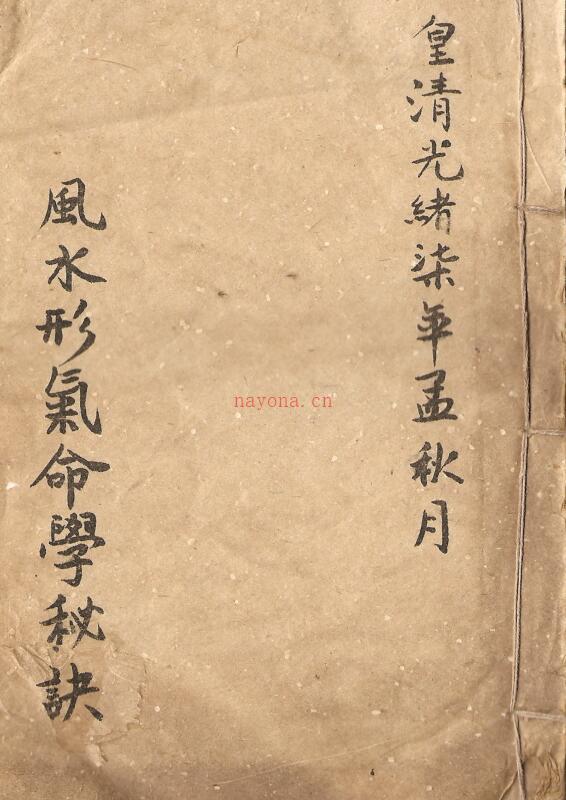 皇清光緒柒年孟秋月
風水形氣命學秘訣
nayona.cn